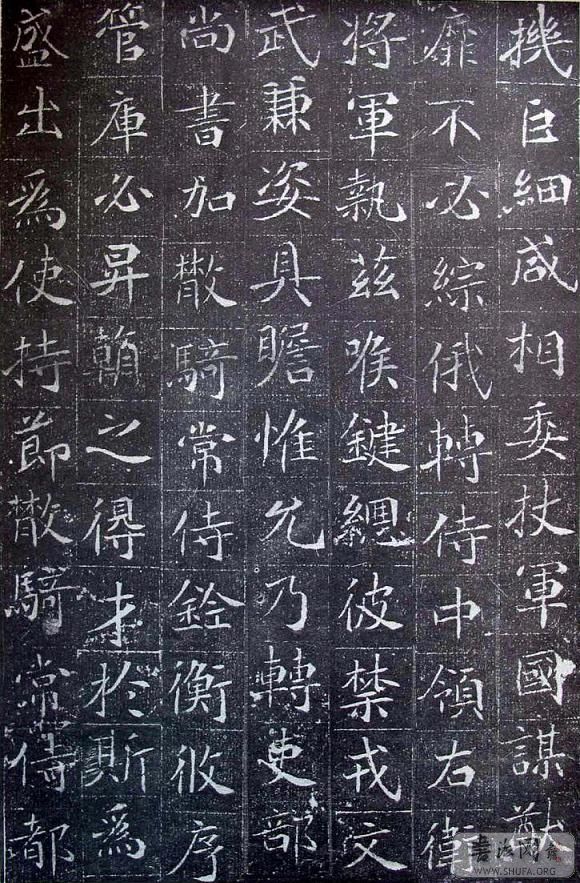 機巨細咸相委杖軍國謀猷
靡不必綜俄轉侍中領右衛
將軍執茲喉鍵總彼禁戎文
武兼姿具瞻惟允乃轉吏部
尚書加散騎常侍銓衡攸序
管庫必昇賴之得才於斯爲
盛出爲使持節散騎常侍都
WWW.SHUFA.ORG